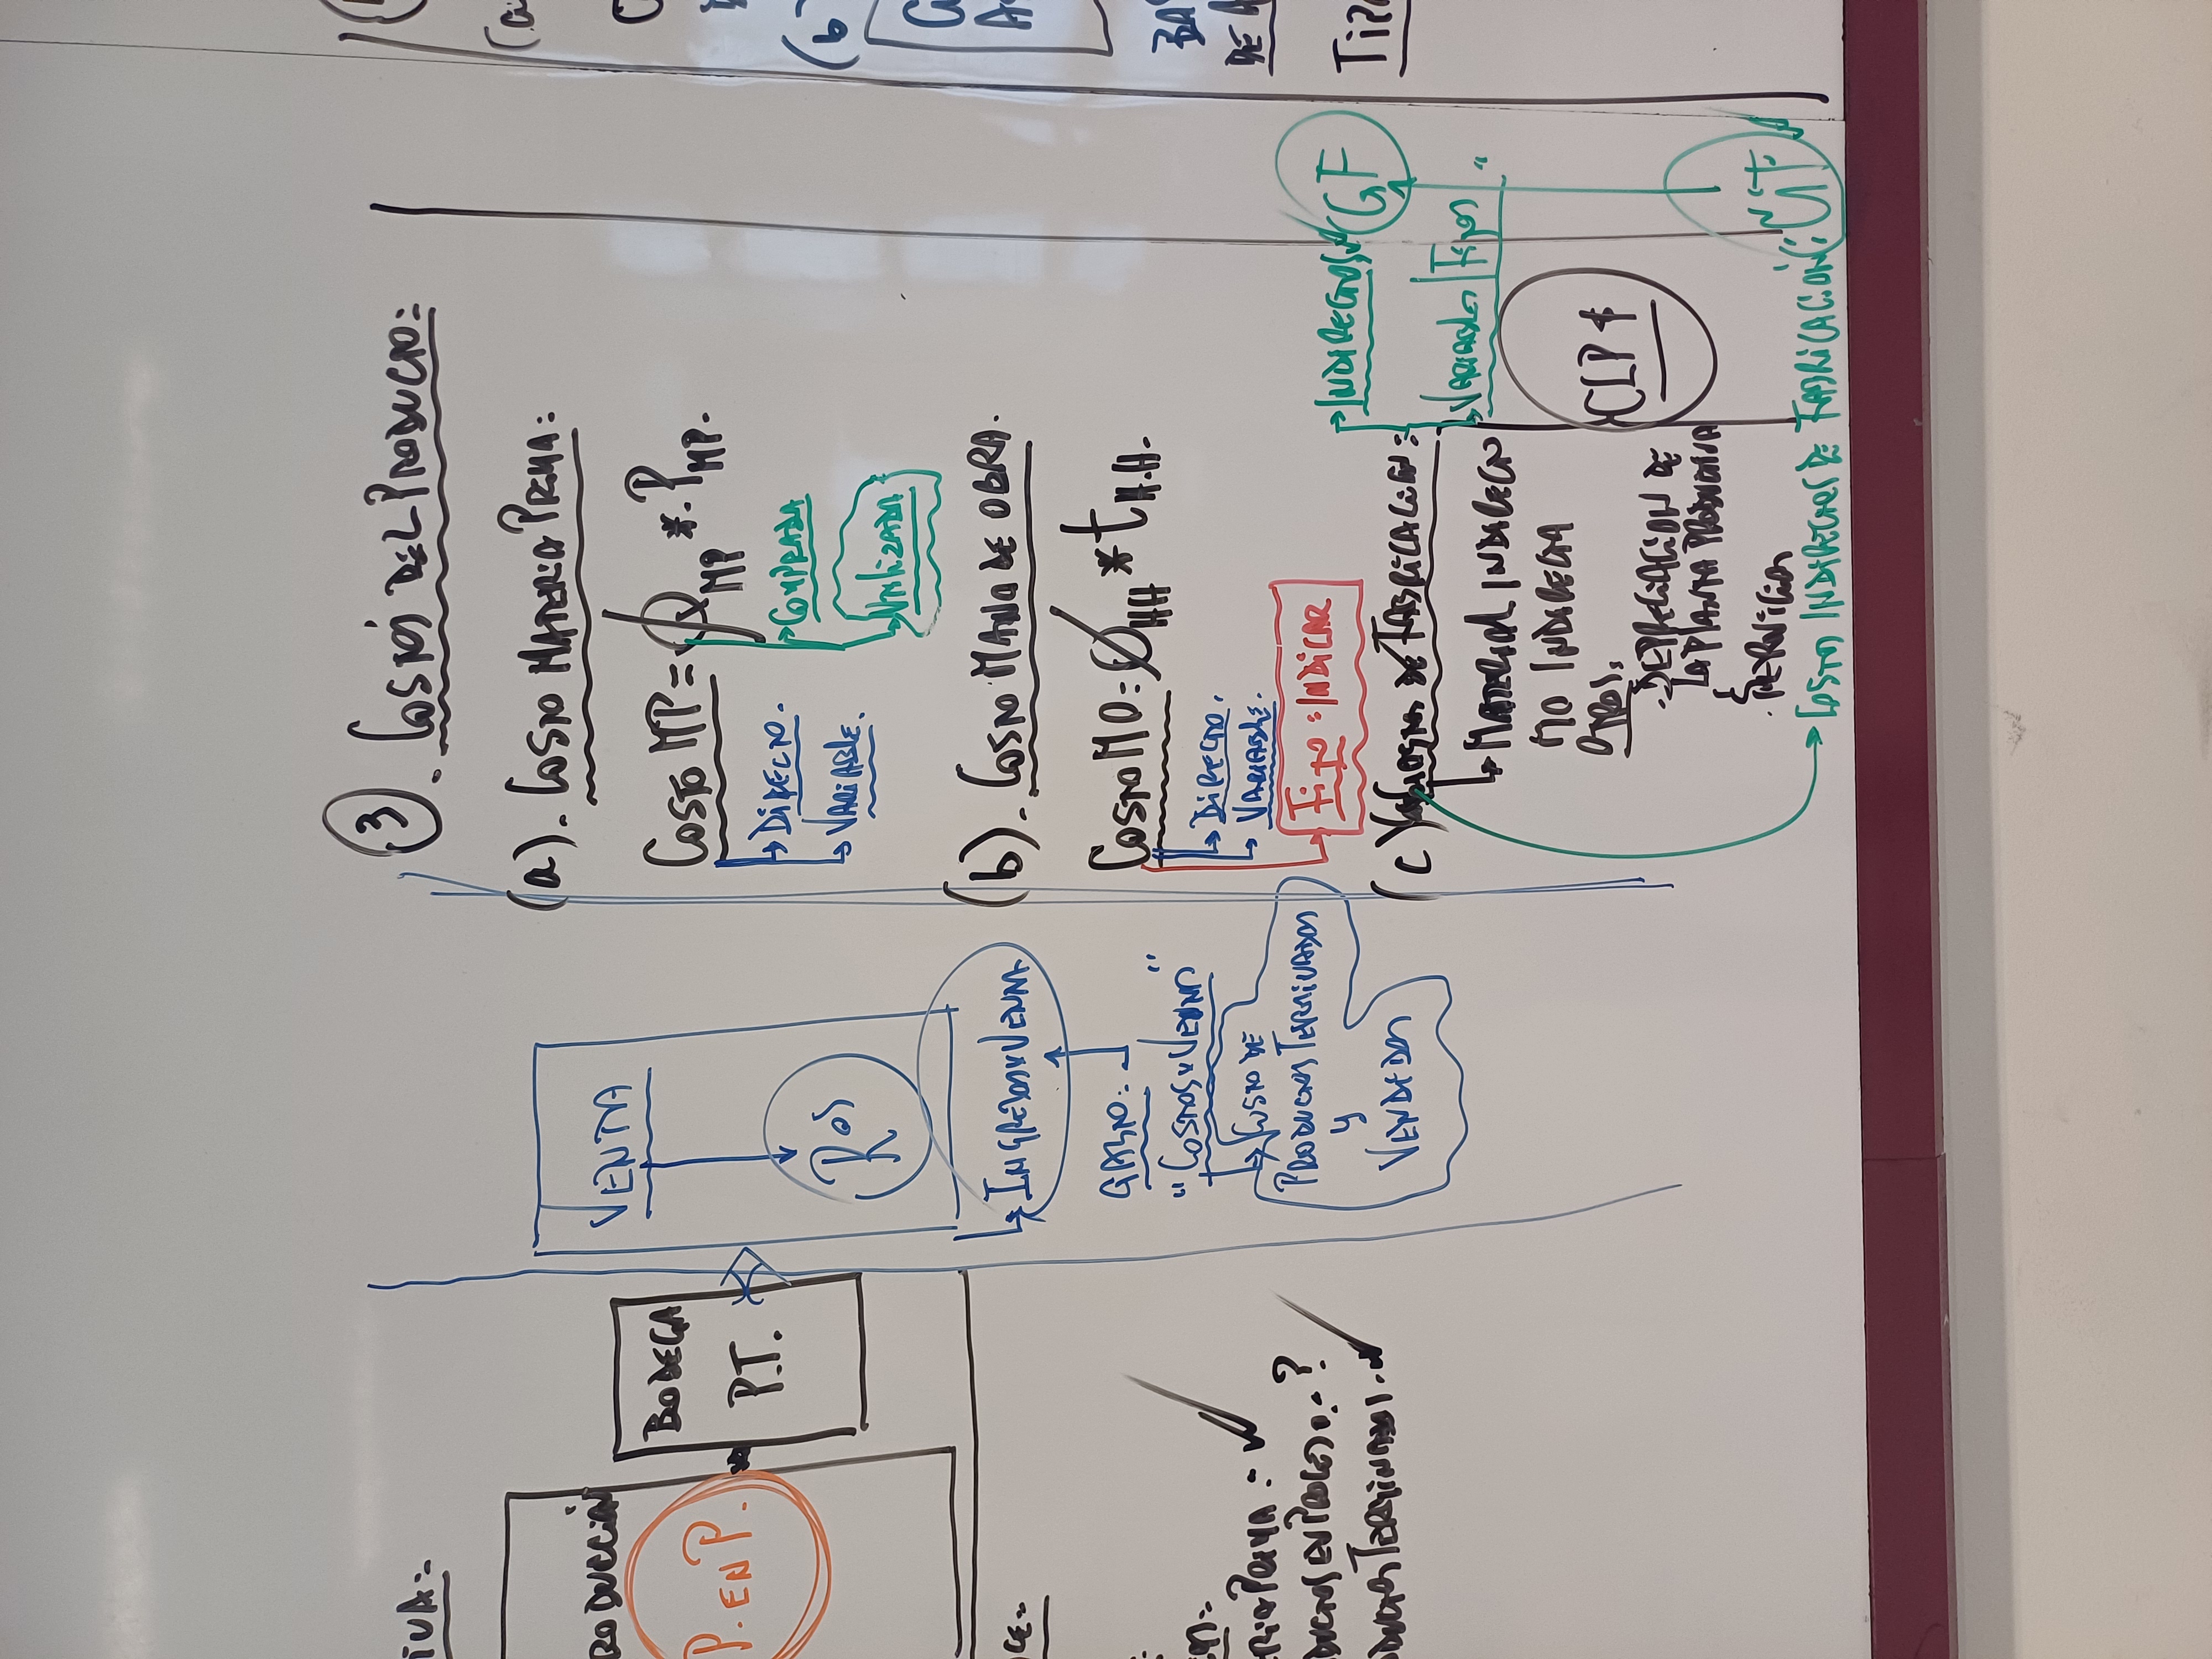 IVA:
RODUCCIÓN
P. EN P.
BODEGA
P.T.
CE:
ERIA PRIMA: ✓
DUCTOS EN PROCESO: ?
DUCTOS TERMINADOS. ✓
VENTA
ROS
INGRESOS X VENTA
GASTO:
"COSTOS X VENTA"
COSTO DE
PRODUCTOS TERMINADOS
Y
VENDIDOS
3. COSTOS DEL PRODUCTO:
(a). COSTO MATERIA PRIMA:
COSTO MP = Q MP * P MP.
DIRECTO.
VARIABLE.
COMPRADA
UTILIZADA
(b). COSTO MANO DE OBRA.
COSTO MO = Q HH * t H.H.
DIRECTO.
VARIABLE.
FIJO: INDICAR
(c) GASTOS DE FABRICACION:
INDIRECTOS
GF
VARIABLES/FIJOS
MATERIAL INDIRECTO
MO INDIRECTA
OTROS.
. DEPRECIACION DE
LA PLANTA PRODUCTIVA
CLP $
COSTOS INDIRECTOS DE FABRICACION: CIF
(a
(b)
BA
DE A
TIPO